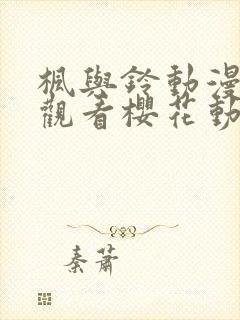 楓與鈴動漫
觀看櫻花動
秦蕭